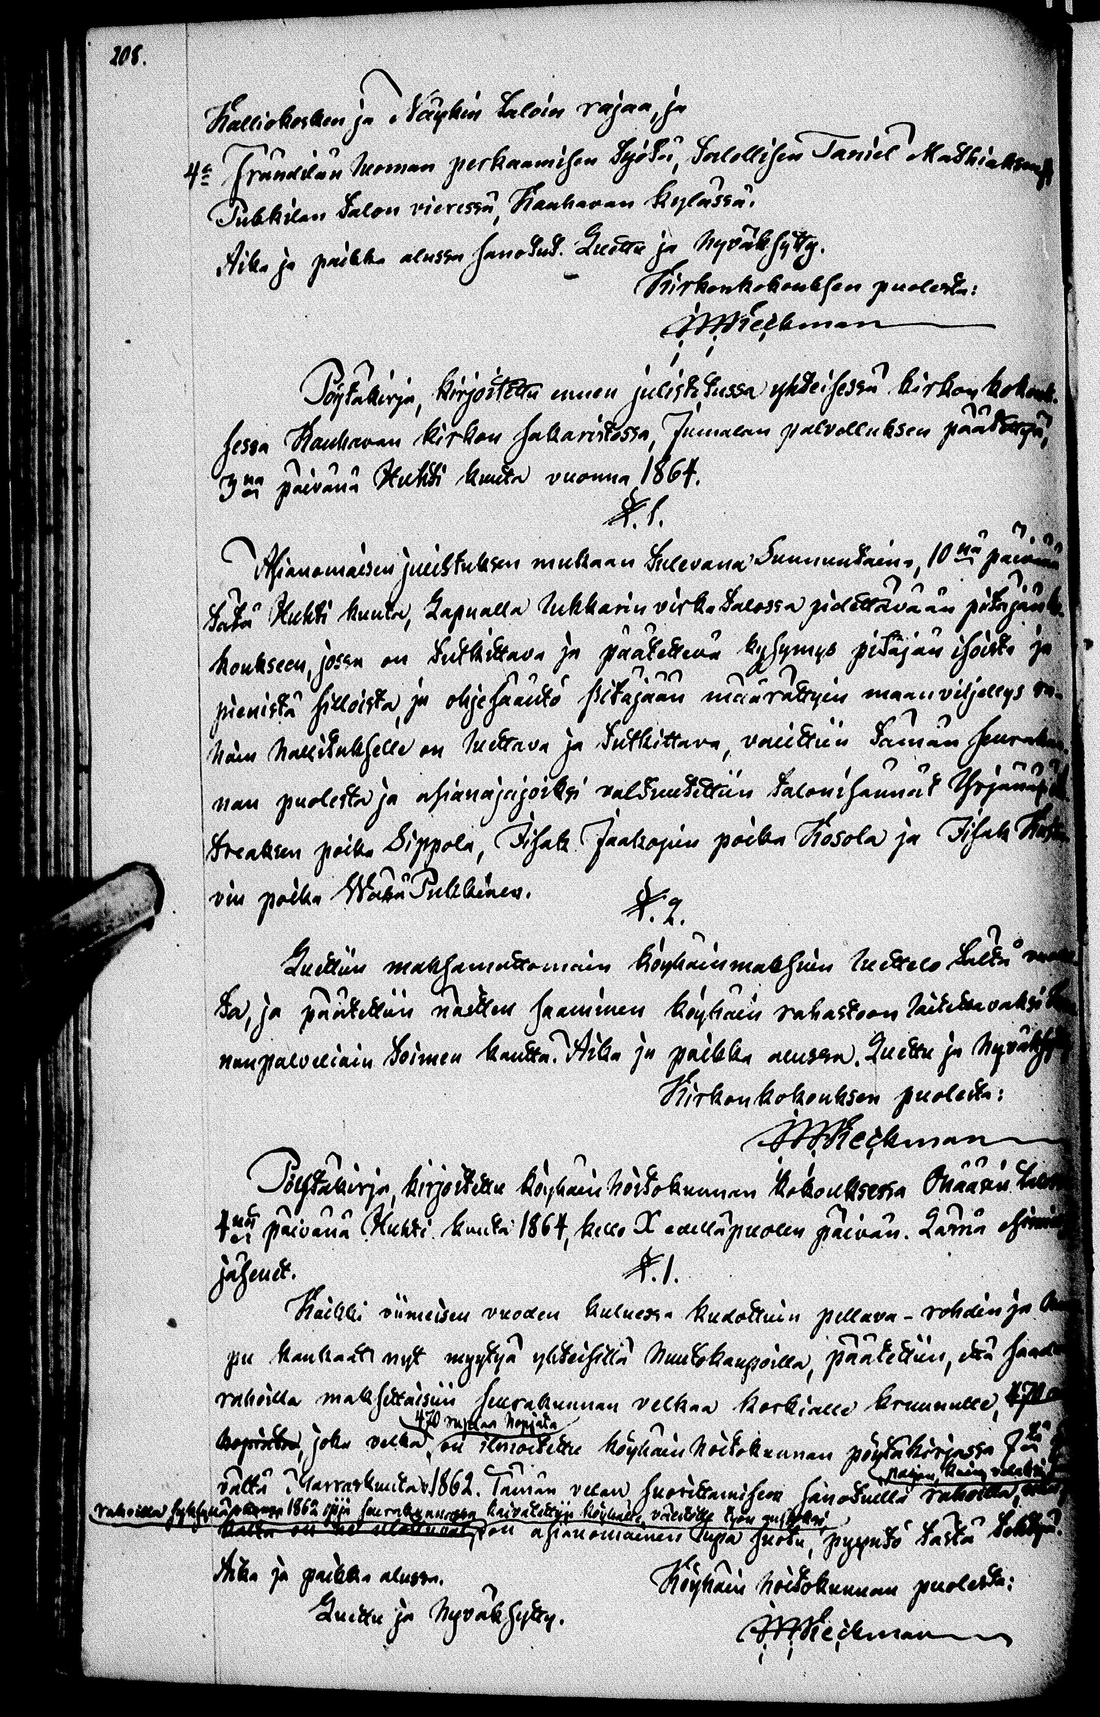 208.
Kalliokosken ja Näykin taloin rajaa, ja
4o Fräntilän luoman perkaamisen työtä, talollisen Taniel Mathiaksenp.
Pukkilan talon vieressä, Kauhavan kylässä.
Aika ja paikka alussa sanotut. Luettu ja hyväksytty.
Kirkonkokouksen puolesta:
Pöytäkirja, kirjoitettu ennen julistetussa yhteisessä kirkon kokouk-
sessa Kauhavan kirkon sakaristossa, Jumalan palvelluksen päätettyä,
3na päivänä Huhti kuuta vuonna 1864.
§. 1.
Asianomaisen julistuksen mukaan tulevana Sunnuntaina, 10nä päivänä
tätä Huhti kuuta, Lapualla lukkarin virka talossa pidettävään pitäjän ko-
koukseen, jossa on tutkittava ja päätettävä kysymys pitäjän isoista ja
pienistä silloista, ja ohjesääntö pitäjään määrättyin maanviljellys
hallitukselle on luettava ja tutkittava, valittiin tämän seurakun-
nan puolesta ja asianajajoiksi valtuutettiin talonisännät Yrjänä
treaksen poika Sippola, Iisak Jaakopin poika Kosola ja Iisak
vin poika Wähä Pukkinen.
§. 2.
Luettiin maksamattomain köyhäinmaksuin luettelo tältä vuodel-
ta, ja päätettiin näitten saaminen köyhäin rahastoon laitettavaksi
nanpalveliain toimen kautta. Aika ja paikka alussa. Luettu ja hyväksytty
Kirkonkokouksen puolesta:
Pöytäkirja, kirjoitettu köyhäinhoitokunnan kokouksessa talossa
4nä päivänä Huhti kuuta 1864, kello X edelläpuolen päivän. Läsnä
jäsenet.
§. 1.
Kaikki viimeisen vuoden kuluessa kudottuin pellava-rohdin ja
pu kankaat nyt myytyä yhteisillä huutokaupoilla, päätettiin, että
rahoilla maksettaisiin seurakunnan velkaa korkialle kruunulle, 470
470 ruplaa hopiata
hopiata, joka velka, on ilmoitettu köyhäinhoitokunnan pöytäkirjassa
vältä Marraskuuta 1862. Tämän velan suorittamiseen sanotuilla rahoilla,
rahoilla syksynä 1862 seurakunnassa köyhälle väestölle työn
on asianomainen lupa suotu, pyyntö tästä tehtyä.
Aika ja paikka alussa.
Köyhäin hoitokunnan puolesta:
Luettu ja hyväksytty.